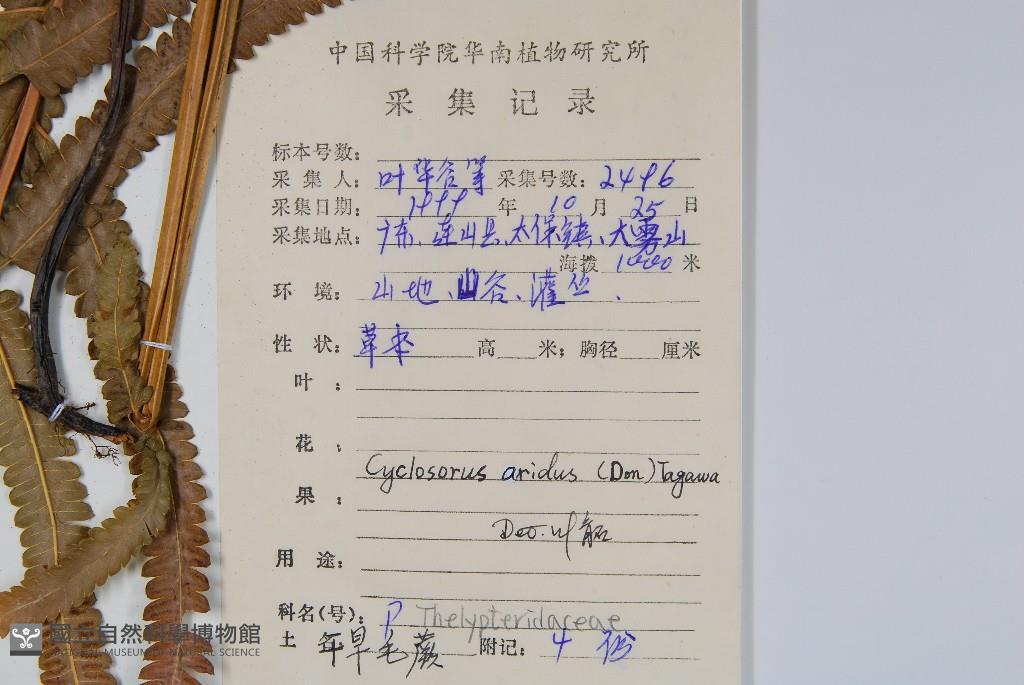 中国科学院华南植物研究所
采集记录
标本号数:
采集人: 叶华谷等 采集号数: 2496
采集日期: 1999 年 10 月 25 日
采集地点: 广东、连山县、太保镇、大雾山
海拨 1000 米
环境: 山地、山谷、灌丛、
性状: 草本 高 米; 胸径 厘米
叶:
花:
Cyclosorus aridus (Don) Tagawa
果:
Det.
用途:
科名(号): P Thelypteridaceae
土 旱毛蕨 附记: 4 份
國立自然科學博物館
NATIONAL MUSEUM OF NATURAL SCIENCE